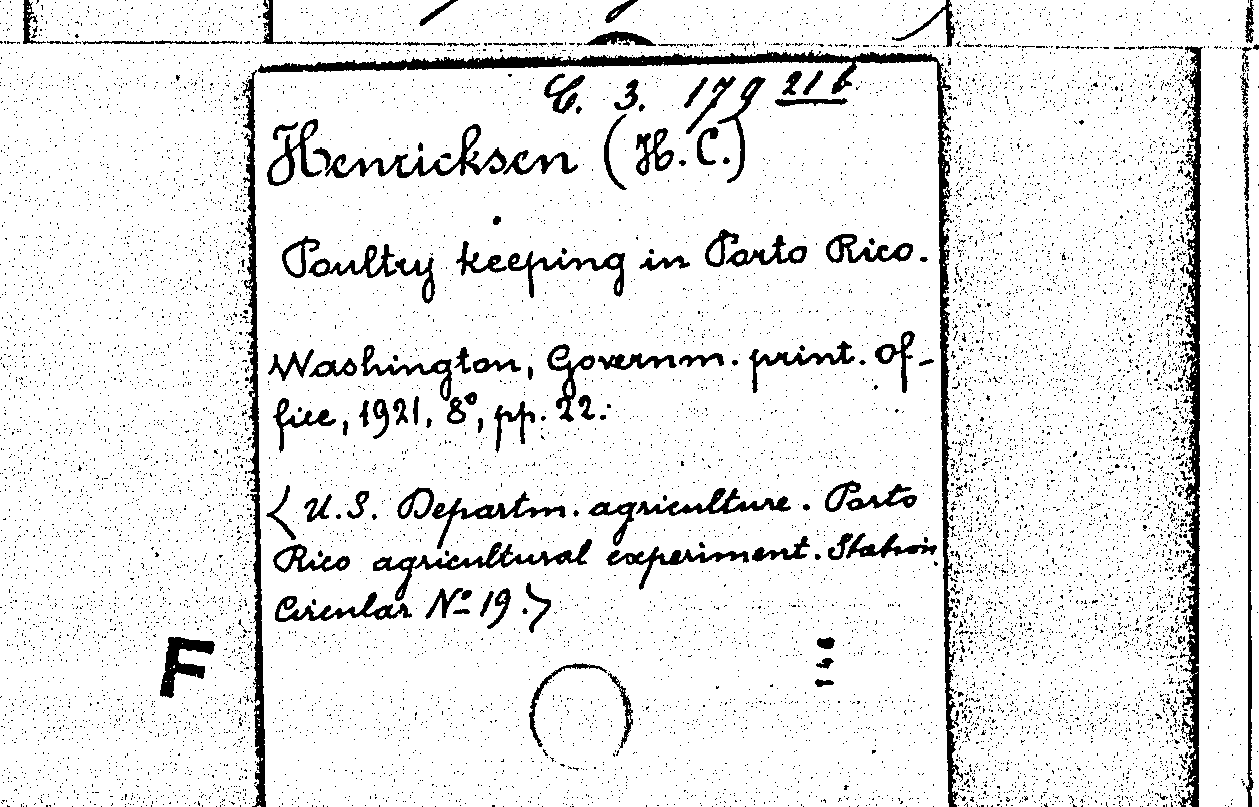 C. 3. 179 21 b
Henricksen (H. C.)
Poultry keeping in Porto Rico.
Washington, Governm. print. of-
fice, 1921, 8°, pp. 22.
< U.S. Departm. agriculture. Porto
Rico agricultural experiment. Station
Circular Nº 19.>
F